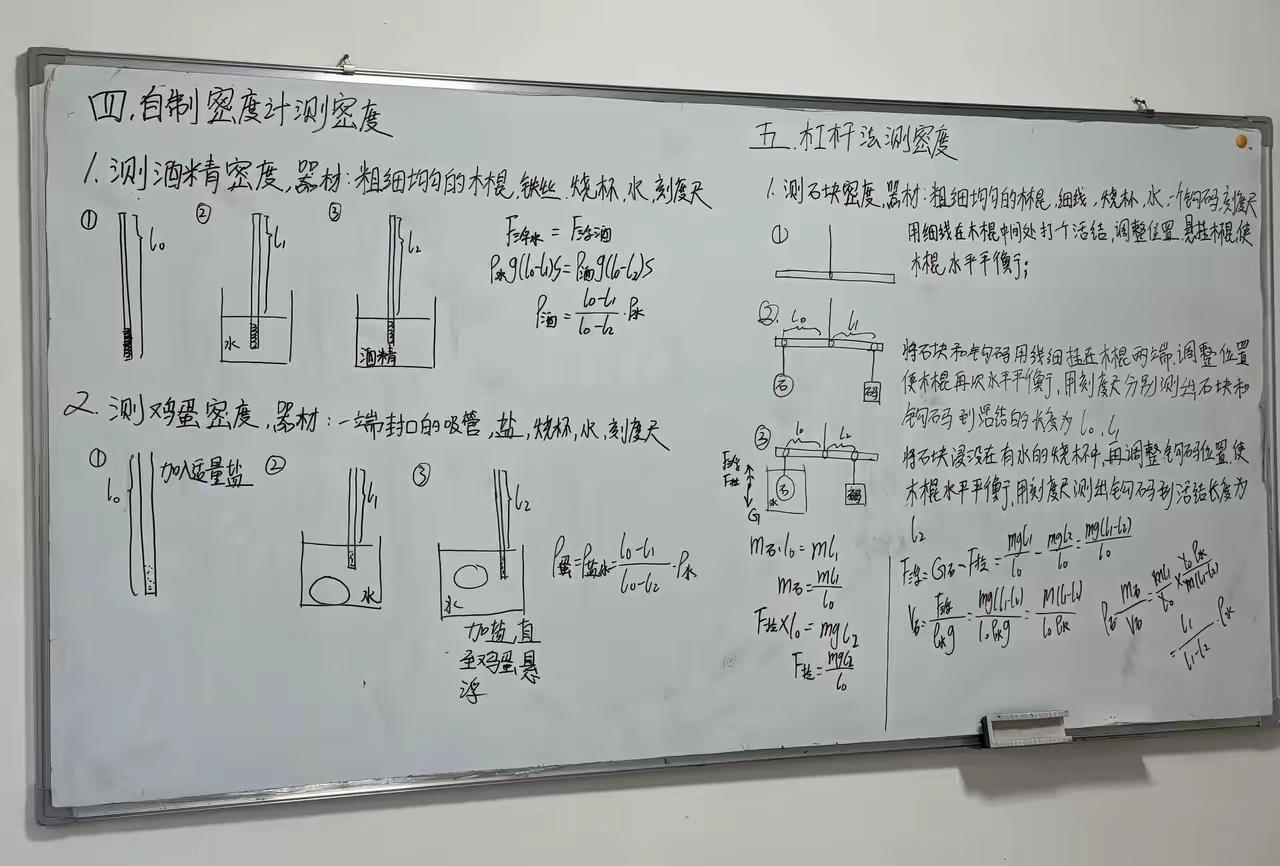 四.自制密度计测密度
1.测酒精密度,器材:粗细均匀的木棍,铁丝.烧杯,水,刻度尺
① l₀
② l₁ 水
③ l₂ 酒精
F浮水 = F浮酒
ρ水g(l₀-l₁)S=ρ酒g(l₀-l₂)S
ρ酒=(l₀-l₁)/(l₀-l₂)·ρ水
2.测鸡蛋密度,器材:一端封口的吸管,盐,烧杯,水,刻度尺
① l₀ 加入适量盐
② l₁ 水
③ l₂ 水
加盐,直
至鸡蛋悬
浮
ρ蛋=ρ盐水=(l₀-l₁)/(l₀-l₂)·ρ水
五.杠杆法测密度
1.测石块密度,器材:粗细均匀的木棍,细线,烧杯,水,一个钩码,刻度尺
①
用细线在木棍中间处打个活结,调整位置.悬挂木棍,使
木棍水平平衡;
② l₀ l₁ 石 码
将石块和钩码用线细挂在木棍两端.调整位置
使木棍再次水平平衡,用刻度尺分别测出石块和
钩码到活结的长度为 l₀,l₁
③ l₀ l₂ F浮 F拉 G 石 水 钩码
将石块浸没在有水的烧杯中,再调整钩码位置,使
木棍水平平衡,用刻度尺测出钩码到活结长度为
l₂
m石·l₀=ml₁
m石=ml₁/l₀
F拉×l₀=mgl₂
F拉=mgl₂/l₀
F浮=G石-F拉=mgl₁/l₀-mgl₂/l₀=mg(l₁-l₂)/l₀
V石=F浮/ρ水g=mg(l₁-l₂)/l₀ρ水g=m(l₁-l₂)/l₀ρ水
ρ石=m石/V石=ml₁/l₀×l₀ρ水/m(l₁-l₂)
=l₁/(l₁-l₂)·ρ水